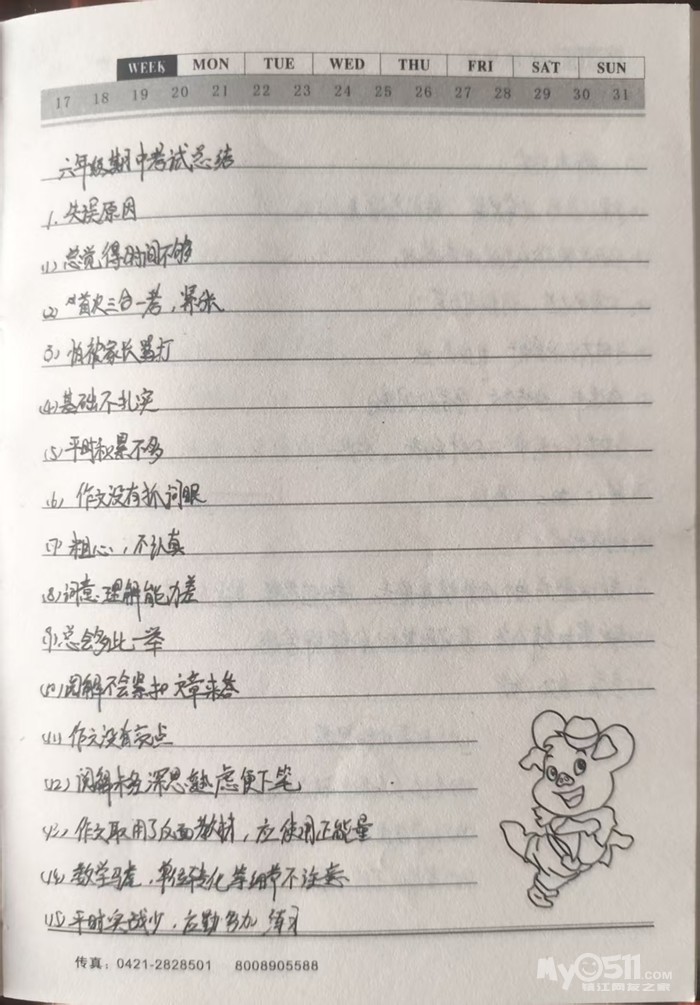 WEEK MON TUE WED THU FRI SAT SUN
17 18 19 20 21 22 23 24 25 26 27 28 29 30 31
六年级期中考试总结
1. 失误原因
(1) 总觉得时间不够
(2) "首次三合一考，紧张
(3) 怕被家长骂打
(4) 基础不扎实
(5) 平时积累不多
(6) 作文没有抓词眼
(7) 粗心，不认真
(8) 词意理解能力差
(9) 总会多此一举
(10) 阅解不会紧扣文章来答
(11) 作文没有亮点
(12) 阅解未经深思熟虑便下笔
(13) 作文取用了反面教材，应使用正能量
(14) 数学马虎，单位转化等细节不注意
(15) 平时实战少，应勤多加练习
传真：0421-2828501 8008905588
My0511.com
镇江网友之家